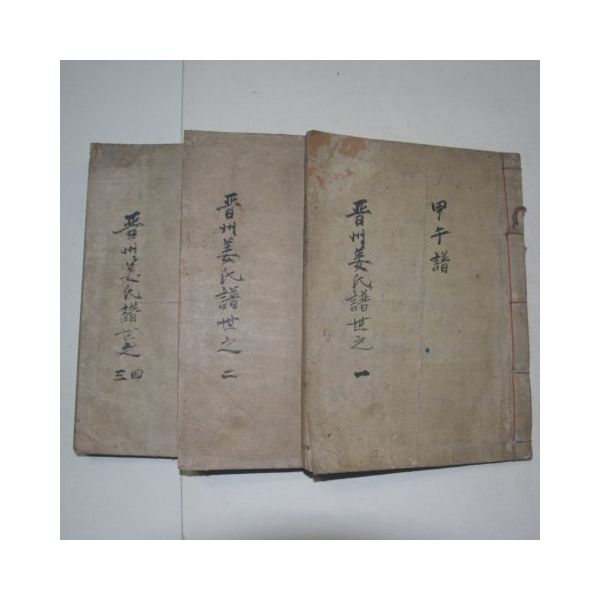 甲午譜
晋州姜氏譜世之
一
晋州姜氏譜世之
二
晋州姜氏譜世之
三四